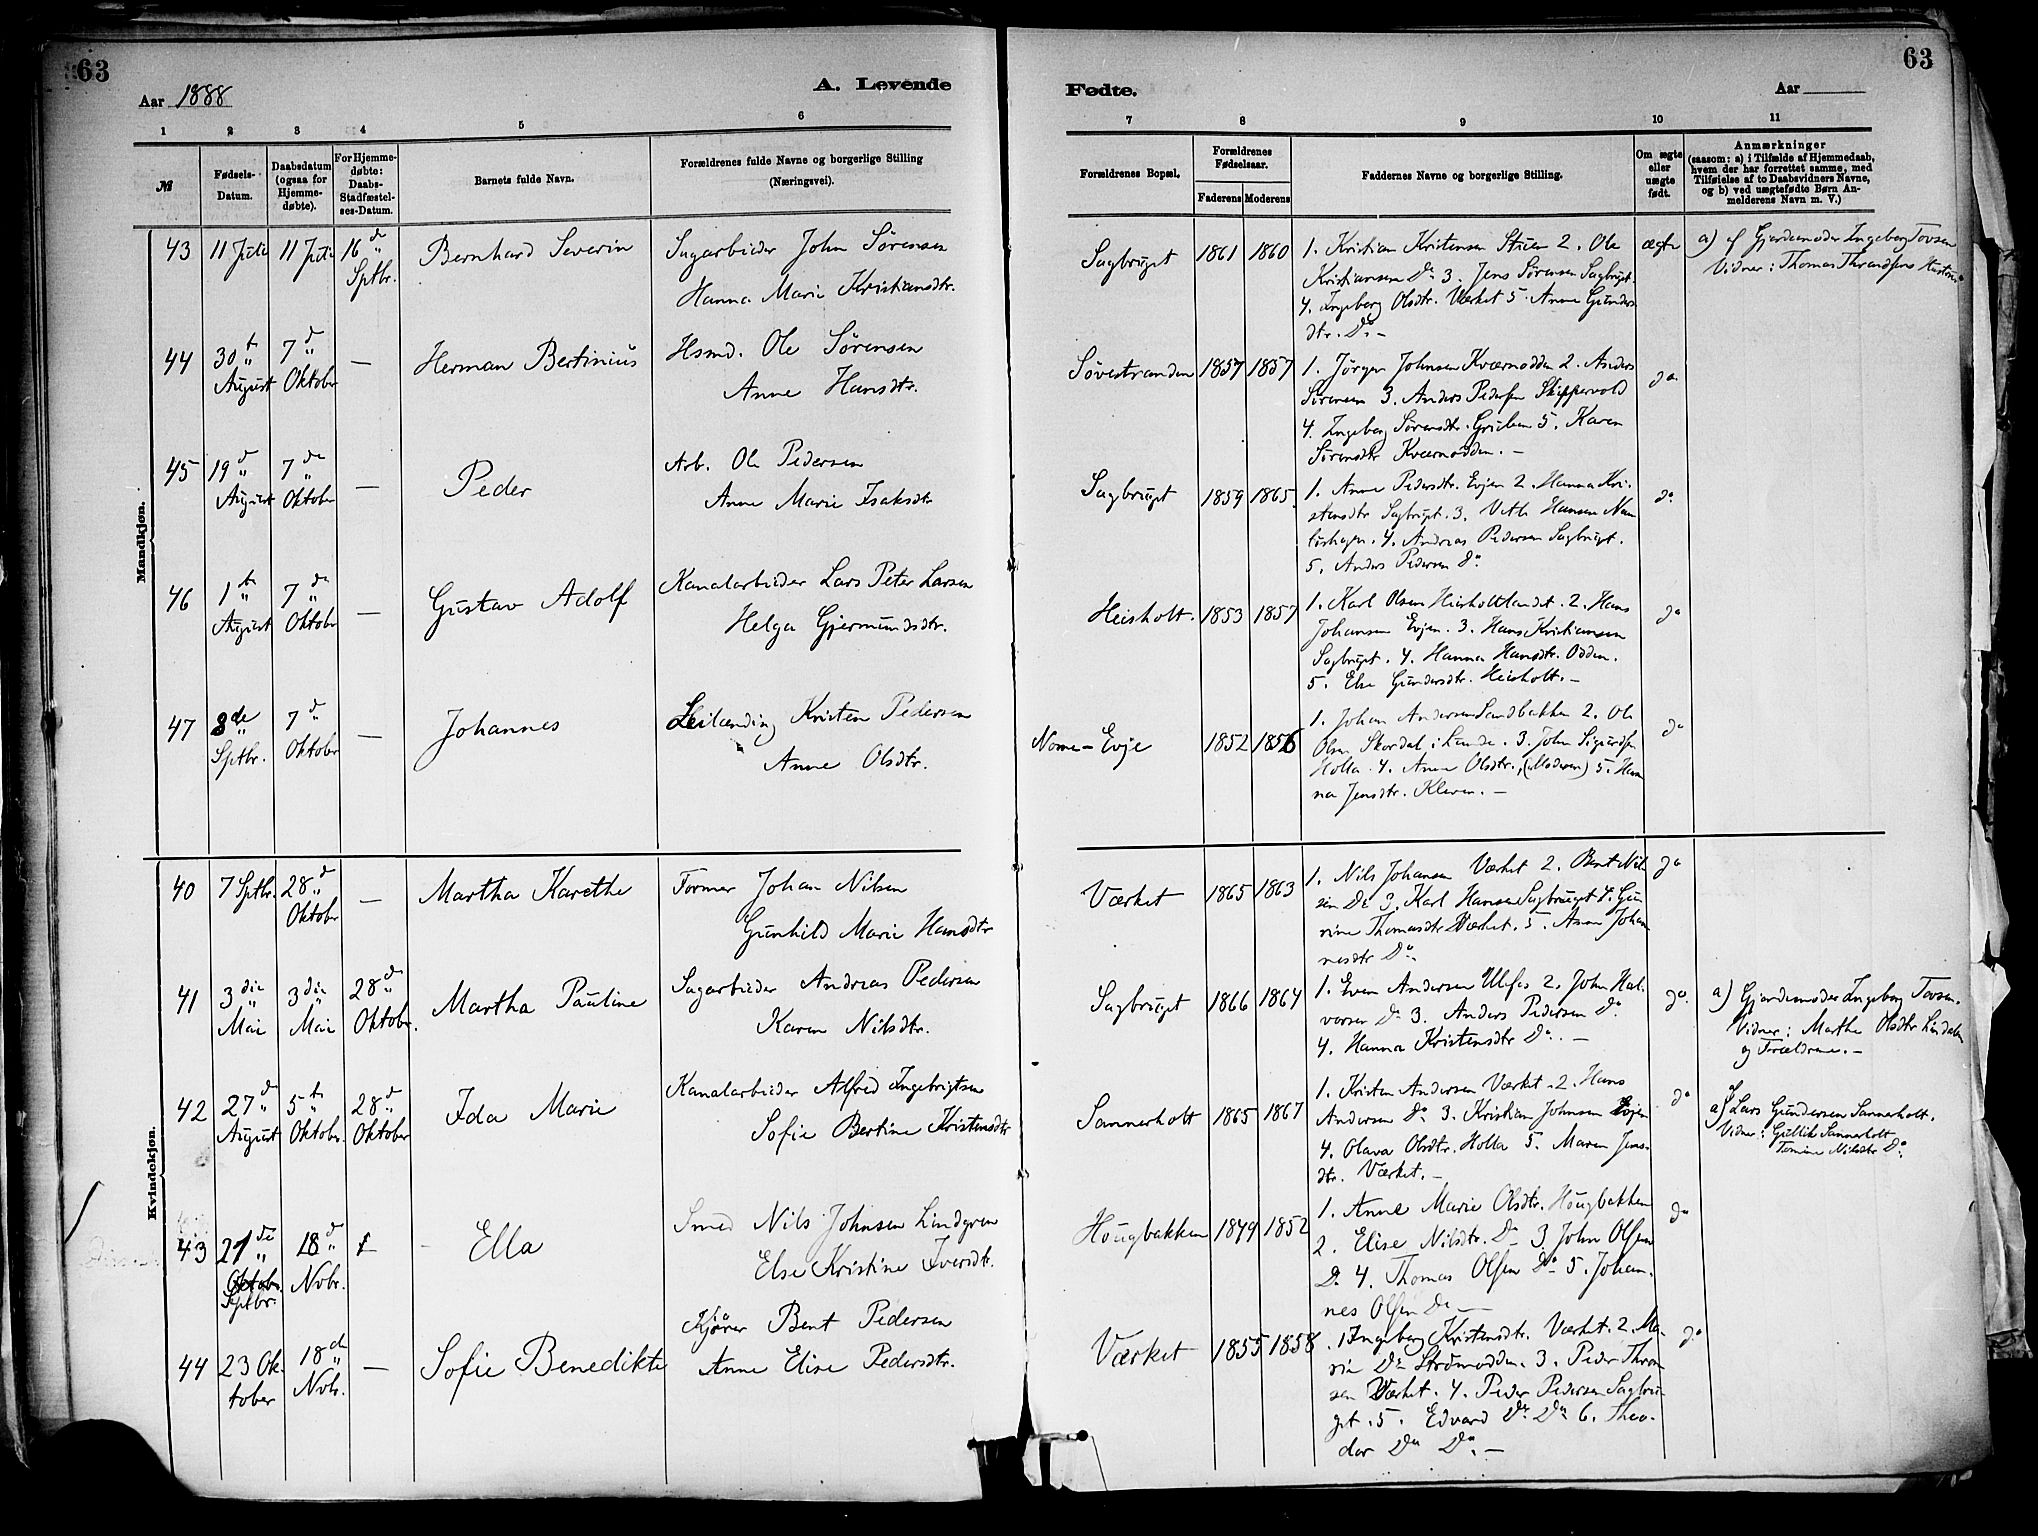 63
Aar 1888
A. Levende
1 2 3 4 5 6
№
Fødsels-
Datum.
Daabsdatum
(ogsaa for
Hjemme-
døbte).
For Hjemme-
døbte:
Daabs-
Stadfæstel-
ses-Datum.
Barnets fulde Navn.
Forældrenes fulde Navne og borgerlige Stilling
(Næringsvei).
Mandkjøn.
43 11 Juli 11 Juli 16 d Sptbr. Bernhard Severin
Sagarbeider John Sørensen
Hanna Marie Kristiansdtr.
44 30 t August 7 d Oktober — Herman Bertinius
Hsmd. Ole Sørensen
Anne Hansdtr.
45 19 d August 7 de Oktober — Peder
Arb. Ole Pedersen
Anne Marie Isaksdtr
46 1 t August 7 de Oktober — Gustav Adolf
Kanalarbeider Lars Peter Larsen
Helga Gjermundsdtr.
47 8 de Sptbr. 7 d Oktober — Johannes
Leilænding Kristen Pedersen
Anne Olsdtr.
Kvindekjøn.
40 7 Sptbr. 28 d Oktober — Martha Karethe
Former Johan Nilsen
Gunhild Marie Hansdtr
41 3 die Mai 3 die Mai 28 d Oktober. Martha Pauline
Sagarbeider Andreas Pedersen
Karen Nilsdtr.
42 27 d August 5 t Oktobr. 28 d Oktober Ida Marie
Kanalarbeider Alfred Ingebrigtsen
Sofie Bertine Kristensdtr
43 21 de Oktobr. Sptbr. 18 d Nvbr. Ella
Smed Nils Johnsen Lindgren
Else Kristine Iversdtr.
44 23 Ok-
tober 18 de Nvbr. — Sofie Benedikte
Kjører Bent Pedersen
Anne Elise Pedersdtr.
63
Fødte.
Aar
7 8 9 10 11
Forældrenes Bopæl.
Forældrenes
Fødselsaar.
Faderens Moderens
Faddernes Navne og borgerlige Stilling.
Om ægte
eller
uægte
født.
Anmærkninger
(saasom: a) i Tilfælde af Hjemmedaab,
hvem der har forrettet samme, med
Tilføielse af to Daabsvidners Navne,
og b) ved uægtefødte Børn An-
melderens Navn m. V.)
Sagbruget 1861 1860
1. Kristian Kristensen Stuen 2. Ole
Kristiansen Do 3. Jens Sørensen Sagbruget.
4. Ingeborg Olsdtr. Værket 5. Anne Gunders-
dtr. Do. —
ægte
a) af Gjordemoder Ingeborg Tovsen
Vidner: Thomas Thrandsens Hustru
Søvestranden 1857 1857
1. Jørgen Johnsen Kværnodden 2. Anders
Sørensen 3. Anders Pedersen Skippervold
4. Ingeborg Sørensdtr. 5. Karen
Sørensdtr Kværnodden. —
do
Sagbruget 1859 1865.
1. Anne Pedersdtr. Evjen 2. Hanna Kri-
stensdtr Sagbruget. 3. Hansen
4. Andreas Pedersen Sagbruget.
5. Anders Pedersen Do
do
Heisholt. 1853 1857
1. Karl Olsen Heisholtlandet. 2. Hans
Johansen Evjen. 3. Hans Kristiansen
Sagbruget. 4. Hanna Hansdtr. Odden.
5. Else Gundersdtr. Heisholt. —
do
Nome-Evje 1852 1856
1. Johan Andersen Sandbakken 2. Ole
Olsen Skordal i Lunde. 3. John Sigurdsen
Holla. 4. Anne Olsdtr., (Moderen) 5. Han-
na Jensdtr. Kleven. —
do
Værket 1865 1863
1. Nils Johansen Værket 2. Bent Nil-
sen Do 3. Karl Hansen Sagbruget 4. Gu-
rine Thomasdtr Værket. 5. Anne Johan-
nesdtr Do.
do
Sagbruget 1866 1864
1. Even Andersen Ulefos 2. John Hal-
vorsen Do 3. Anders Pedersen Do
4. Hanna Kristensdtr Do. —
do.
a) Gjordemoder Ingeborg Tovsen.
Vidner: Marthe Olsdtr Lindalen
og Forældrene. —
Sannerholt 1865 1867
1. Kristen Andersen Værket. 2. Hans
Andersen Do 3. Kristian Johnsen Evjen
4. Olava Olsdtr. Holla 5. Maren Jens-
dtr. Værket. —
do
a) af Lars Gundersen Sannerholt.
Vidner: Gullik Sannerholt
Tomine Nilsdtr Do.
Hougbakken 1849 1852
1. Anne Marie Olsdtr. Hougbakken
2. Elise Nilsdtr. Do 3 John Olsen
Do 4. Thomas Olsen Do 5. Johan-
nes Olsen Do —
do
Værket 1855 1858
1. Ingeborg Kristensdtr. Værket. 2. Ma-
rie Do Strømodden. 3. Peder Thron-
sen Værket. 4. Peder Pedersen Sagbru-
get. 5. Edvard Do Do 6. Theo-
dor Do Do. —
do